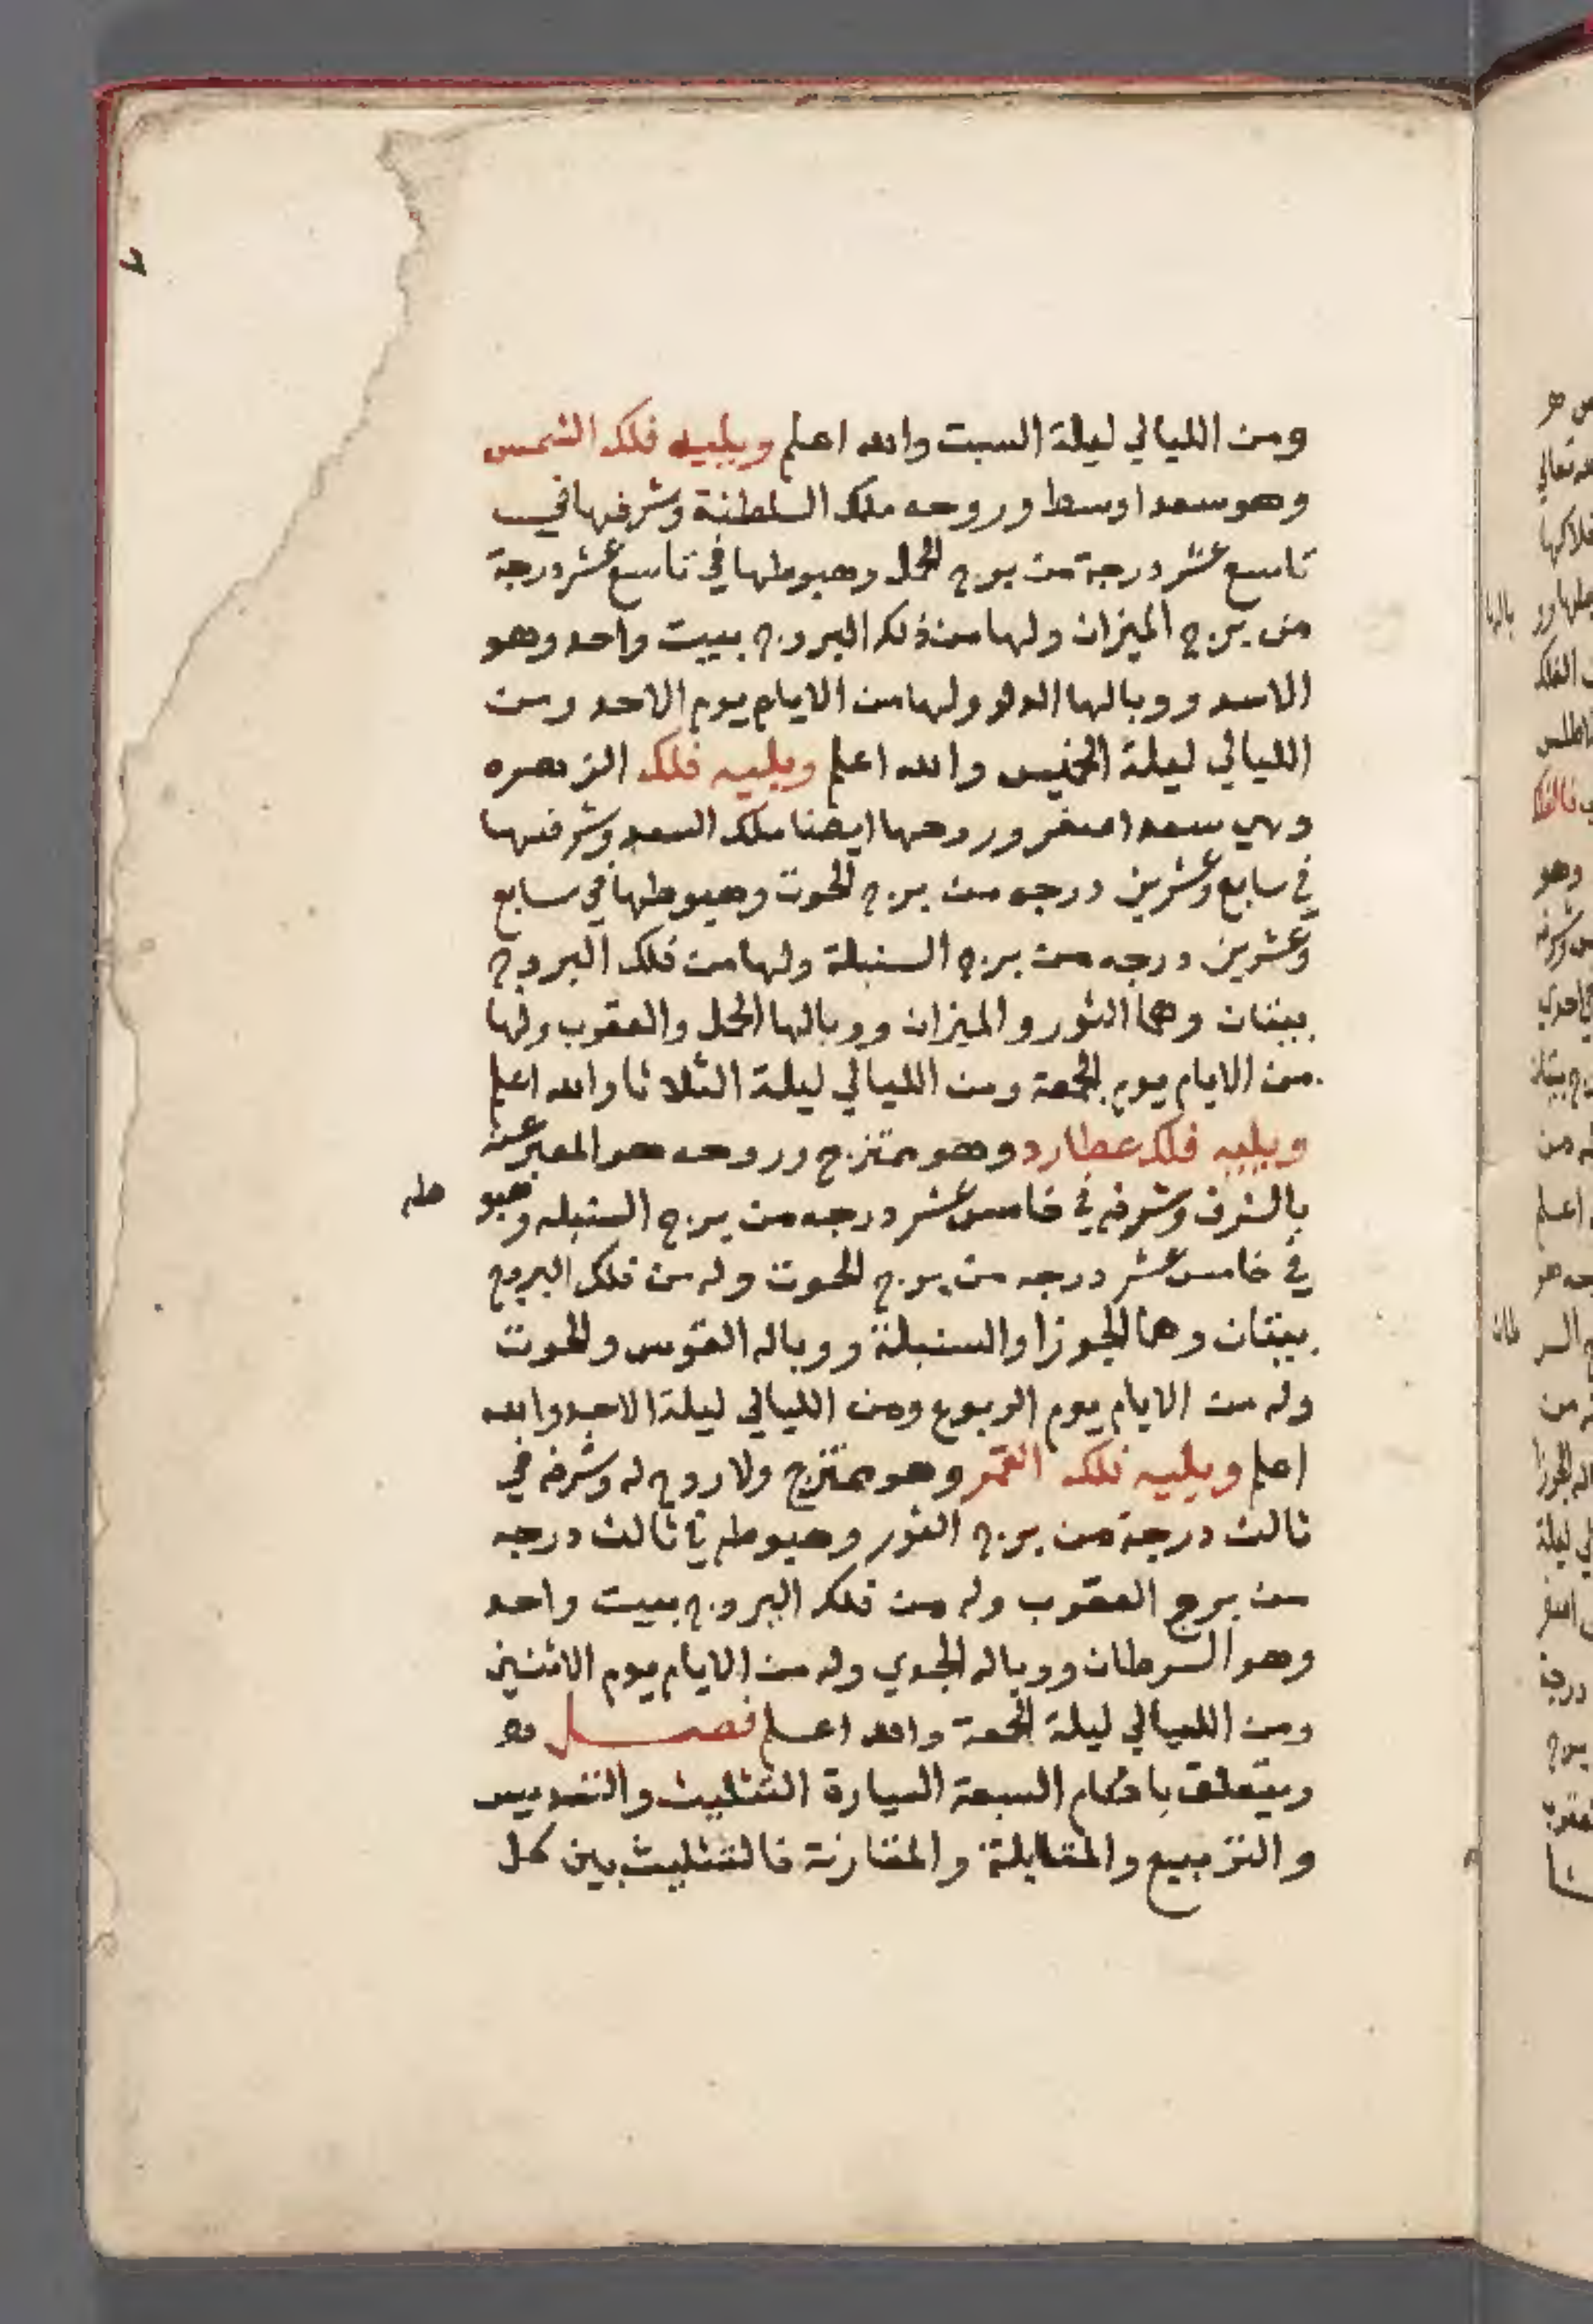 ومن الليالي ليلة السبت والله اعلم ويليه فلك الشمس
وهو سعد اوسط وروحه ملك السلطنة وشرفها في
تاسع عشر درجة من برج الحمل وهبوطها في تاسع عشر درجة
من برج الميزان ولها من ذلك البروج بييت واحد وهو
الاسد ووبالها الدلو ولها من الايام يوم الاحد ومن
الليالي ليلة الخنيس والله اعلم ويليه فلك الزهره
وهي سعد اصغر وروحها ايضا ملك السعد وشرفها
في سابع وعشرين درجه من برج الحوت وهبوطها في سابع
وعشرين درجه من برج السنبلة ولها من فلك البروج
بيتان وهما الثور والميزان ووبالها الحمل والعقرب ولها
من الايام يوم الجمعة ومن الليالي ليلة الثلاثا والله اعلم
ويليه فلك عطارد وهو ممتزج وروحه هو المعبر عنه
بالشرف وشرفه في خامس عشر درجه من برج السنبله وهبو طه
في خامس عشر درجه من برج الحوت وله من فلك البروج
بيتان وهما الجوزا والسنبلة ووباله القوس والحوت
وله من الايام يوم الربوع ومن الليالي ليلة الاحد والله
اعلم ويليه فلك القمر وهو ممتزج ولا روح له وشرفه في
ثالث درجة من برج الثور وهبوطه في ثالث درجه
من برج العقرب وله من فلك البروج بييت واحد
وهو السرطان ووباله الجدي وله من الايام يوم الاثنين
ومن الليالي ليلة الجمعة والله اعلم فصل
ويتعلق باحكام السبعة السيارة التثليث والتسديس
والتربيع والمقابلة والمقارنة فالتثليث بين كل